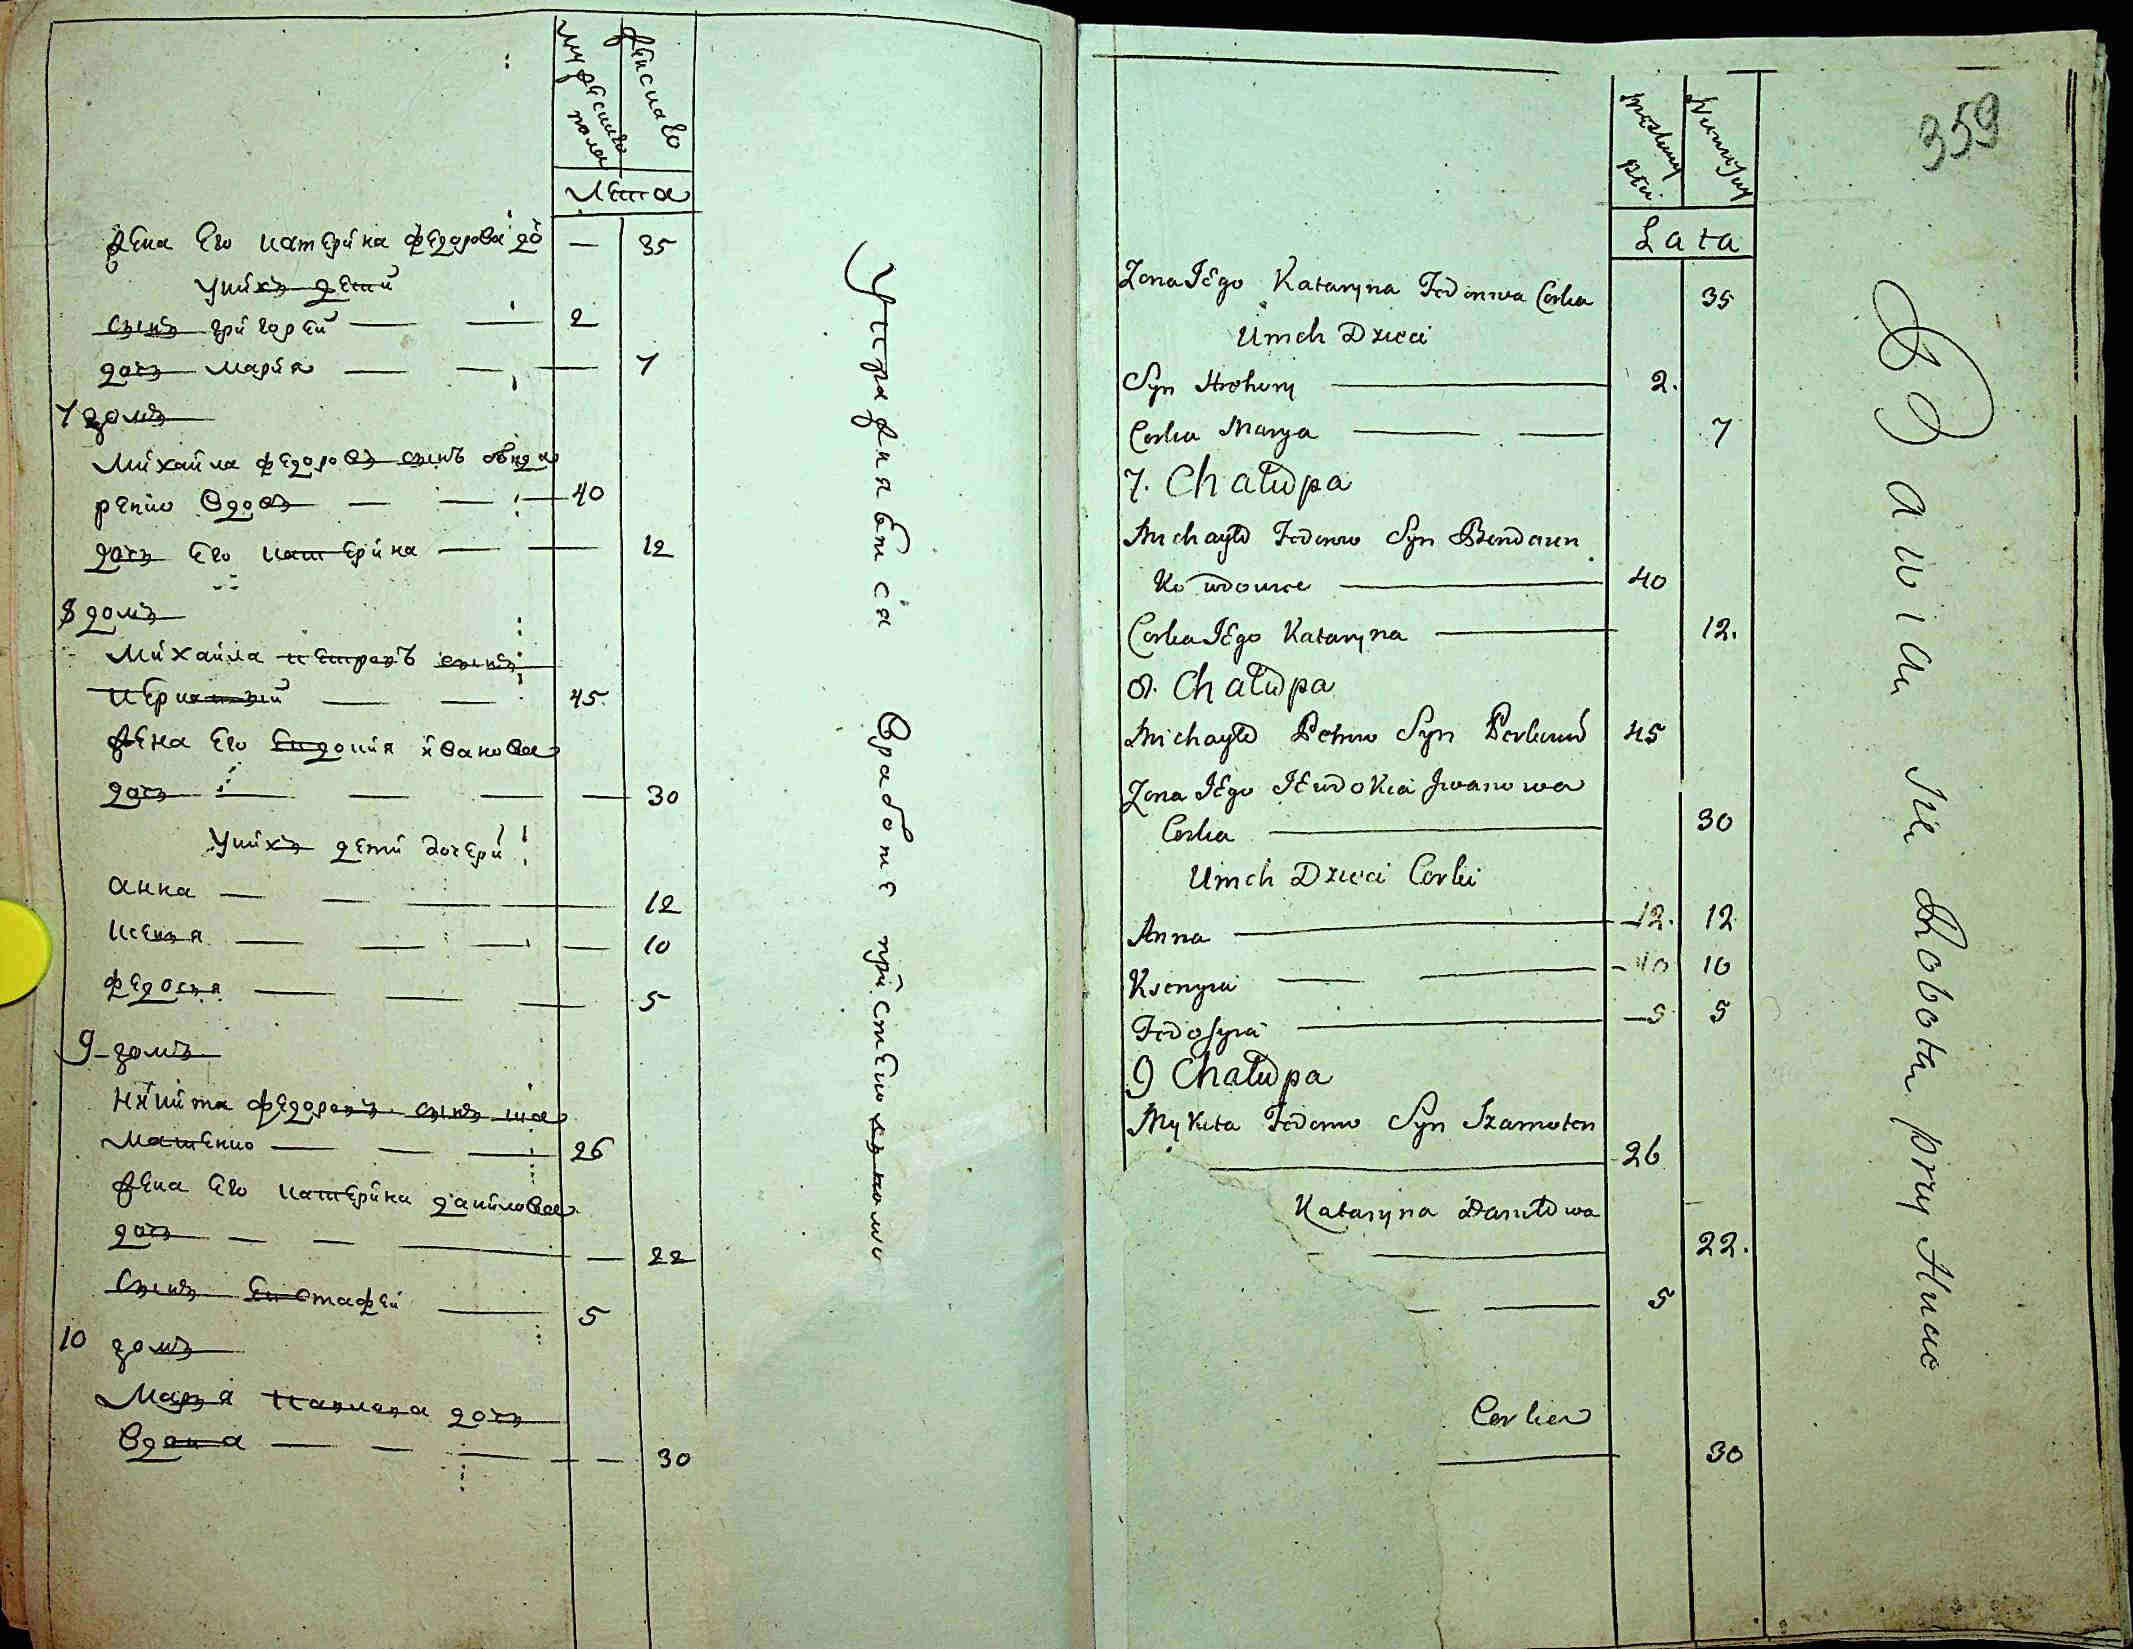 мужеска пола
женска
лета
жена Его катерина федорова до 35
у них дети
сынъ григорей 2
дочъ мария 7
7 домъ
Михайла федоровъ сынъ
ренко вдовъ 40
дочъ Его катерина 12
8 домъ
Михайла петровъ сынъ
45
жена Его Евдокия иванова
дочъ 30
у нихъ дети дочери
анна 12
ксенья 10
федосья 5
9 домъ
Никита федоровъ сынъ ша
матенко 26
жена Его катерина данилова
дочъ 22
сынъ Евстафей 5
10 домъ
Марья павлова дочъ
вдова 30
Упражняются в работе при
359
Lata
Zona Iego Kataryna Fedorowa Corka 35
Unich Dzieci
Syn Hrehory 2.
Corka Marya 7
7. Chałupa
Michayło Fedorow Syn Bondaren
ko wdowiec 40
Corka Iego Kataryna 12.
8. Chałupa
Michayło Petrow Syn 45
Zona Iego Iewdokia Iwanowa
Corka 30
Unich Dzieci Corki
Anna 12. 12
Ksenyia 10 10
Fedosyia 5 5
9 Chałupa
Mykita Fedorow Syn Szamoten
26
Kataryna Daniłowa
22.
5
Corka
30
Bawią Się Robotą przy